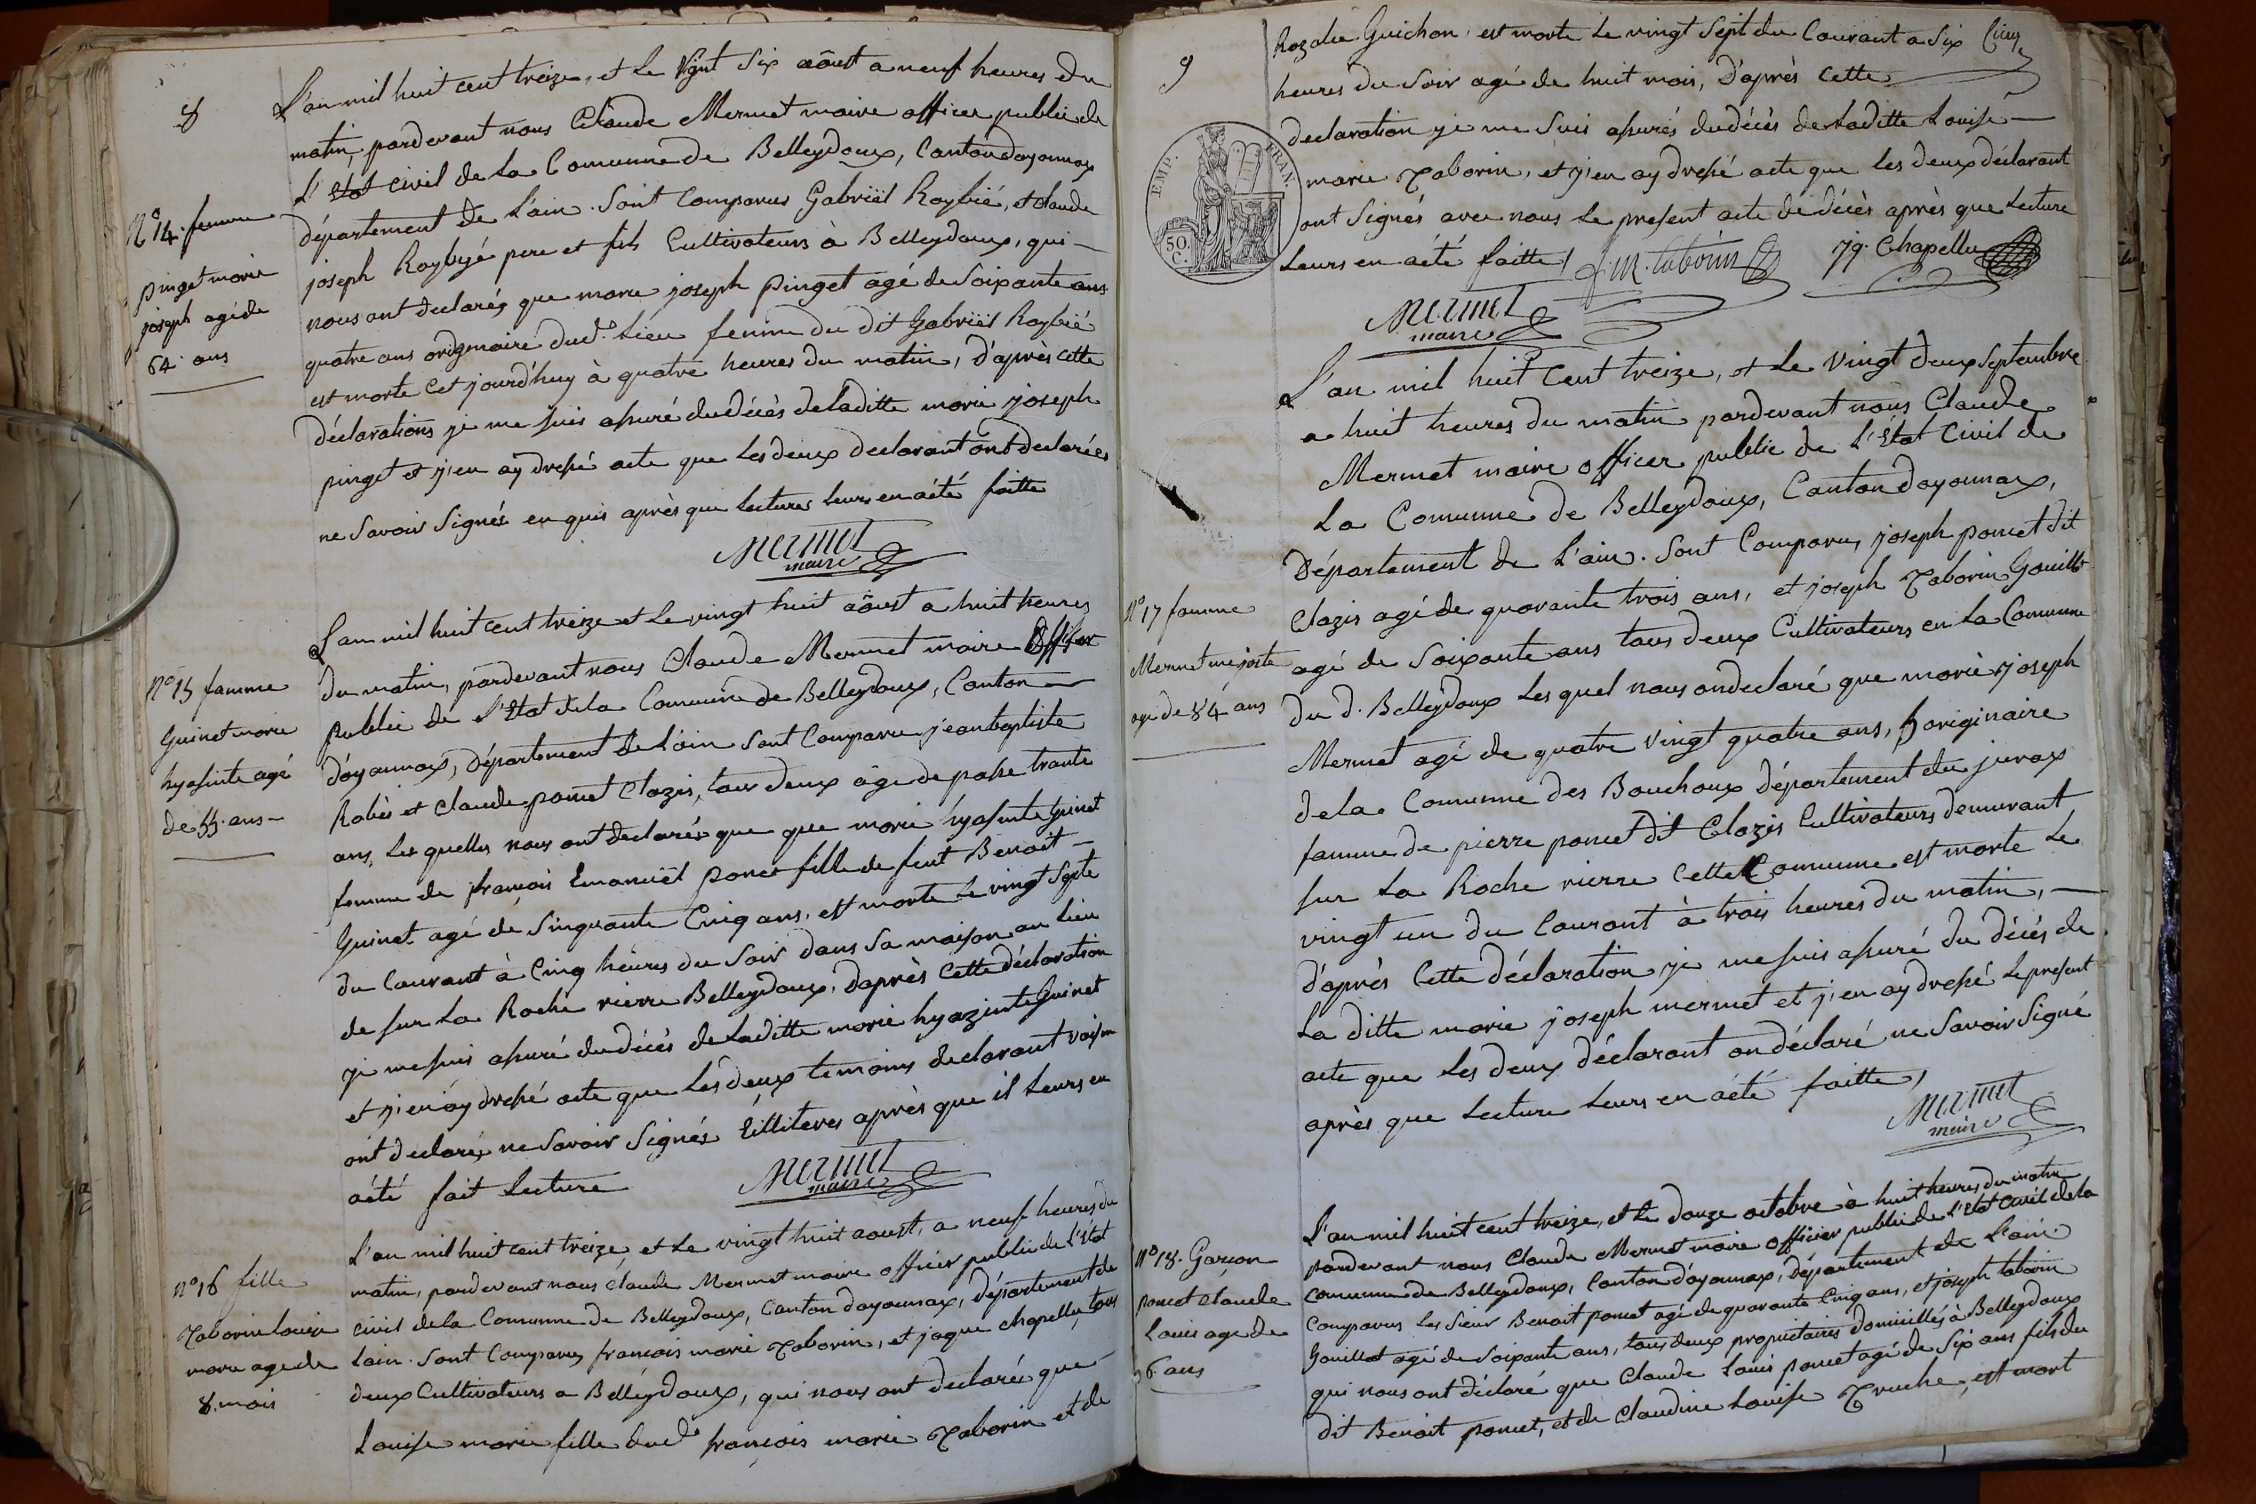 8
L'an mil huit cent treize, et le vignt six aôust a neuf heures du
matin, pardevant nous Claude Mermet maire officer public de
L'Etat civil de la Comunne de Belleydoux, Canton doyonnax
N° 14. femme
département de L'ain. Sont Comparus Gabriël Roybié, et claude
joseph Roybyé pere et fils Cultivateurs à Belleydoux, qui
pinget marie
nous ont declarés que marie joseph pinget agé de Soixante ans
joseph agé de
quatre ans origenaire dud.° Lieu femme du dit Gabriël Roybié
64. ans
est morte Cet jourd'huy à quatre heures du matin, d'après cette
déclarations je me suis assuré du décès de laditte marie joseph
pinget et j'en ay dressé acte que les deux declarant ont declarées
ne Savoir Signés en quis après que lectures leurs en a été faitte
Mermet
maire
L'an mil huit cent treize et le vingt huit aôust a huit heures
du matin, pardevant nous Claude Mermet maire officer
N° 15 famme
Public de l'Etat de la Comunne de Belleydoux, Canton
Guinet marie
d'oyonnax, département de L'ain Sont Comparu jean baptiste
hyasinte agé
Rabès et claude poncet Clazis, tous deux âge de passe trante
de 55. ans
ans, Les quelles nous ont declarés que que marie hyasinte Guinet
femme de françois Emanuël Poncet fille de feut Benoit
Guinet agé de Sinquante Cinq ans, est morte le vingt Septe
du Courant à Cinq heures du Soir dans Sa maison au lieu
de sur La Roche rierre Belleydoux, d'après Cette déclaration
je me suis assuré du décès de Laditte marie hyazinte Guinet
et j'en ay dressé acte que Les deux temoins declarant voisin
ont declaré ne Savoir Signés Eilliteres après que il leurs en
a été fait Lecture
Mermet
maire
L'an mil huit cent treize, et Le vingt huit aoust, a neuf heures du
matin, pardevant nous claude Mermet maire officier public de L'Etat
n° 16 fille
civil de la Comunne de Belleydoux, Canton doyonnax, département de
Taborin louise
Lain. Sont Comparus françois marie Taborin, et jaque chapellu, tous
marie age de
deux Cultivateurs a Belleydoux, qui nous ont declaré que
8. mois
Louise marie fille dud.° françois marie Taborin et de
9
Rozalie Guichon, est morte Le vingt Sept du Courant a Six Cinq
heures du Soir agé de huit mois, D'après Cette
declaration je me Suis assurés du décès de Laditte Louise
EMP. FRAN.
50. C.
marie Taborin, et j'en ay dressé acte que Les deux déclarant
ont Signés avec nous Le present acte de décès après que Lecture
Leurs en a été faitte / f. m. taborin jq. Chapellu
Mermet
maire
L'an mil huit Cent treize, et Le Vingt deux Septembre
a huit heures du matin pardevant nous Claude
Mermet maire officer public de L'Etat Civil de
La Comunne de Belleydoux, Canton doyonnax,
Département de L'ain. Sont Comparu, joseph poncet dit
N° 17 famme
Clazis agé de quarante trois ans, et joseph Taborin Gouillot
Mermet me joste
agé de Soixante ans tous deux Cultivateurs en La Comunne
age de 84 ans
du d. Belleydoux Les quel nous on declaré que marie joseph
Mermet agé de quatre Vingt quatre ans, horiginaire
de la Comunne des Bouchoux département du jurax
famme de pierre poncet dit Clazis Cultivateurs demurant
sur La Roche rierre Cette Comunne est morte Le
vingt un du Courant à trois heures du matin,
d'après Cette déclaration je me suis assuré du décés de
La ditte marie joseph mermet et j'en ay dressé Le present
acte que Les deux déclarant on déclaré ne Savoir Signé
après que Lecture Leurs en a été faitte,
Mermet
maire
L'an mil huit cent treize, et Le douze octobre à huit heures du matin
pardevant nous Claude Mermet maire officier public de l'Etat civil de la
N° 18. Garçon
comunne de Belleydoux, Canton d'oyonnax, département de L'ain
poncet claude
Comparus Les Sieur Benoit poncet agé de quarante Cinq ans, et joseph taborin
Louis age de
Gouillot agé de Soixante ans, tous deux proprietaires domicillés à Belleydoux
6 ans
qui nous ont déclaré que Claude Louis poncet agé de Six ans fils du
dit Benoit poncet, et de Claudine Louise Truche, est mort